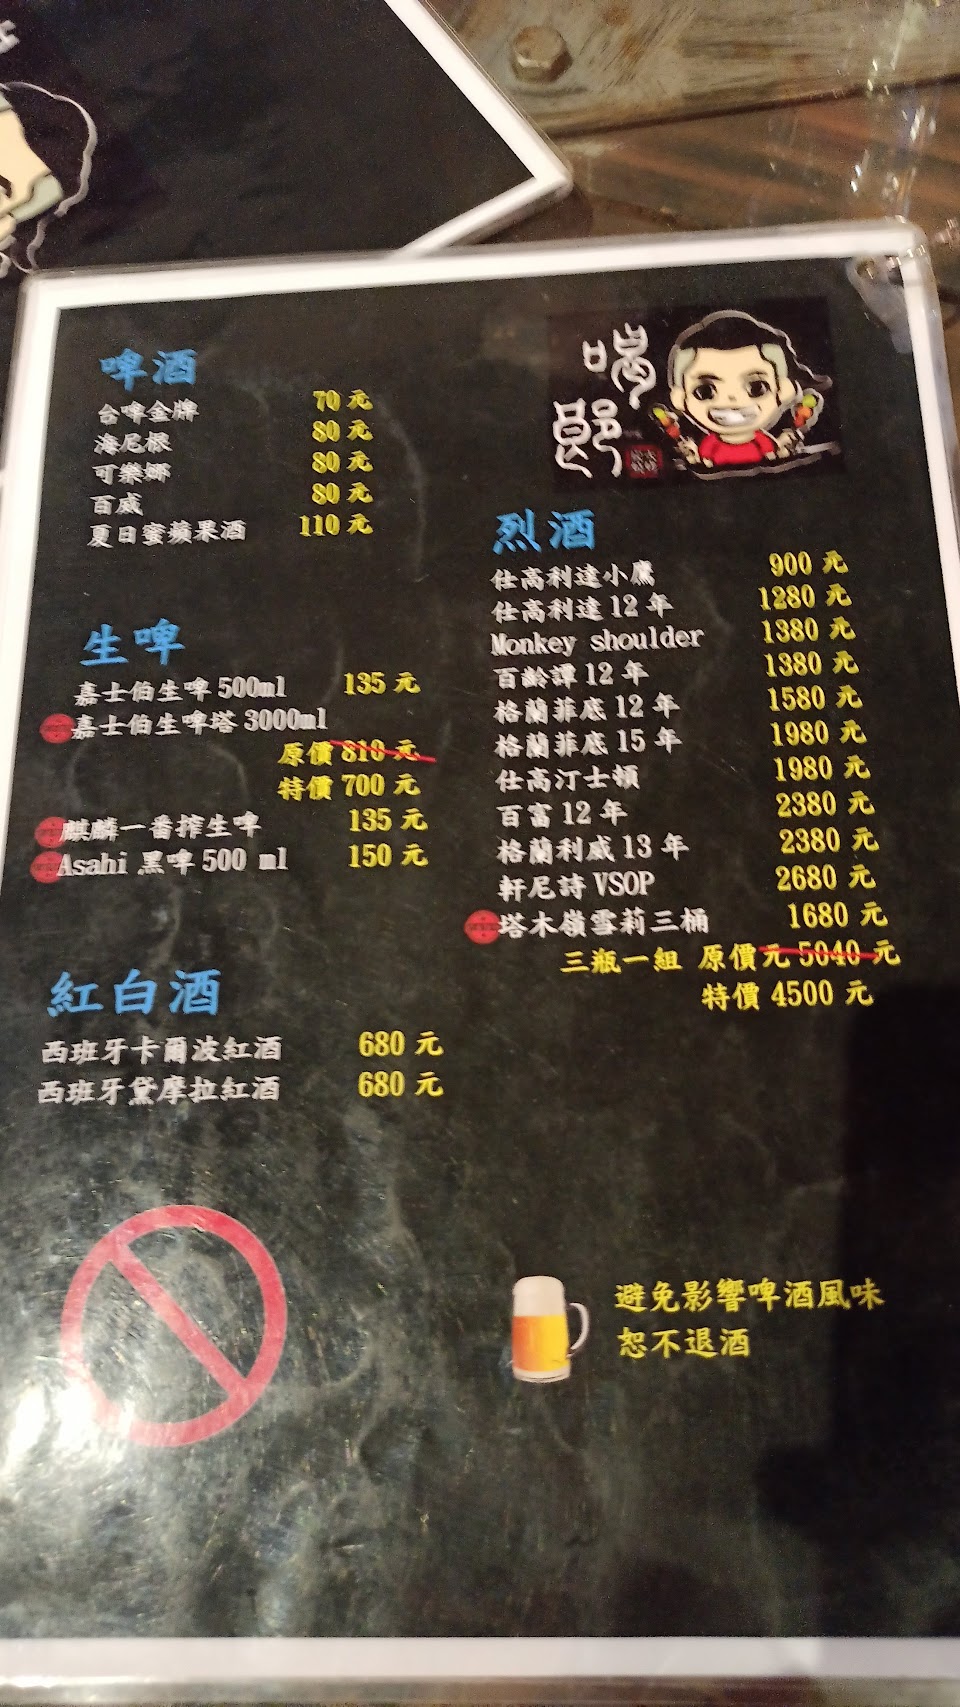 喝
郎
啤酒
台啤金牌 70 元
海尼根 80 元
可樂娜 80 元
百威 80 元
夏日蜜蘋果酒 110 元
生啤
嘉士伯生啤 500ml 135 元
嘉士伯生啤塔 3000ml
原價 810 元
特價 700 元
麒麟一番搾生啤 135 元
Asahi 黑啤 500 ml 150 元
紅白酒
西班牙卡爾波紅酒 680 元
西班牙黛摩拉紅酒 680 元
烈酒
仕高利達小鷹 900 元
仕高利達 12 年 1280 元
Monkey shoulder 1380 元
百齡譚 12 年 1380 元
格蘭菲底 12 年 1580 元
格蘭菲底 15 年 1980 元
仕高汀士頓 1980 元
百富 12 年 2380 元
格蘭利威 13 年 2380 元
軒尼詩 VSOP 2680 元
塔木嶺雪莉三桶 1680 元
三瓶一組 原價元 5040 元
特價 4500 元
避免影響啤酒風味
恕不退酒